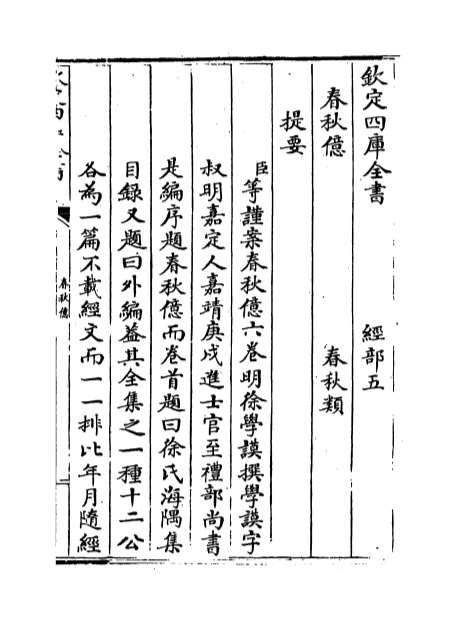 欽定四庫全書　經部五
春秋億　春秋類
提要
臣等謹案春秋億六卷明徐學謨撰學謨字
叔明嘉定人嘉靖庚戌進士官至禮部尚書
是編序題春秋億而卷首題曰徐氏海隅集
目録又題曰外編葢其全集之一種十二公
各為一篇不載經文而一一排比年月隨經
春秋億
一